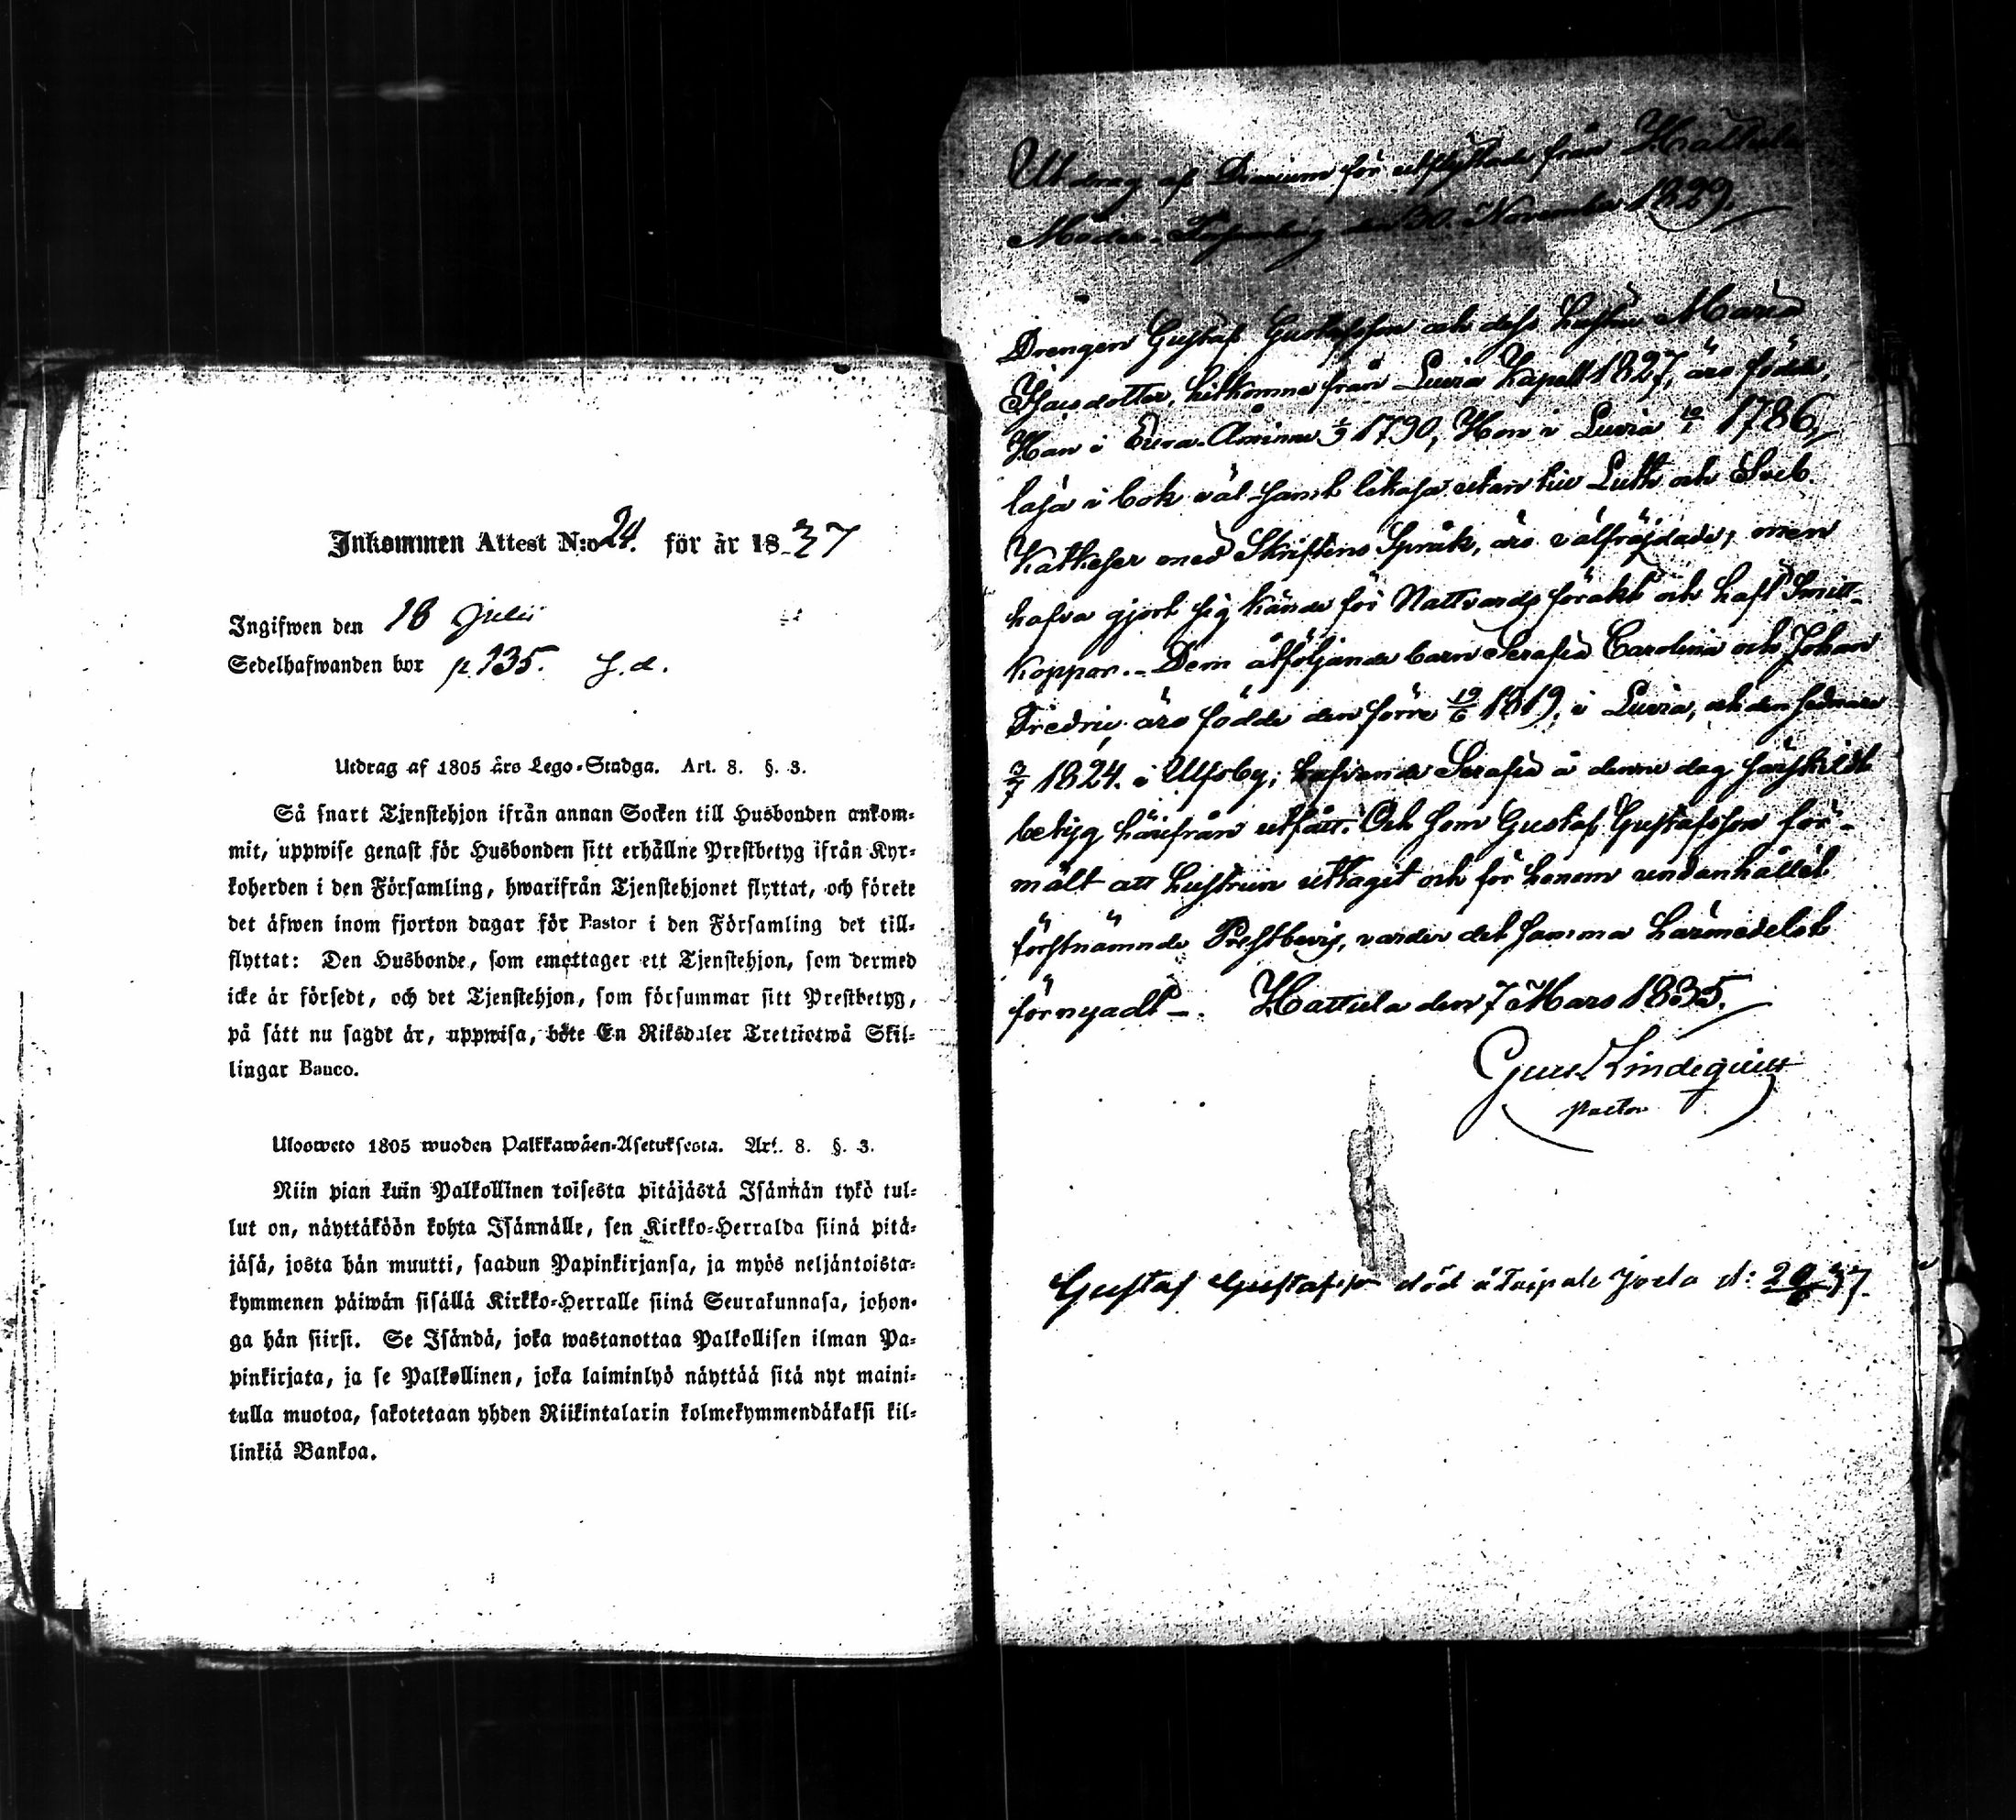 Inkommen Attest N:o 24. för år 1837
Ingifwen den 18 Julii
Sedelhafwanden bor p. 135. J. d.
Utdrag af 1805 års Lego-Stadga. Art. 8. §. 3.
Så snart Tjenstehjon ifrån annan Socken till Husbonden ankom-
mit, uppwise genast för Husbonden sitt erhållne Prestbetyg ifrån Kyr-
koherden i den Församling, hwarifrån Tjenstehjonet flyttat, och förete
det äfwen inom fjorton dagar för Pastor i den Församling det till-
flyttat: Den Husbonde, som emottager ett Tjenstehjon, som dermed
icke är försedt, och det Tjenstehjon, som försummar sitt Prestbetyg,
på sätt nu sagdt är, uppwisa, böte En Riksdaler Trettiotwå Skil-
lingar Banco.
Ulosweto 1805 wuoden Palkkawäen-Asetuksesta. Art. 8. §. 3.
Niin pian kuin Palkollinen toisesta pitäjästä Isännän tykö tul-
lut on, näyttäköön kohta Isännälle, sen Kirkko-Herralda siinä pitä-
jäsä, josta hän muutti, saadun Papinkirjansa, ja myös neljäntoista-
kymmenen päiwän sisällä Kirkko-Herralle siinä Seurakunnasa, johon-
ga hän siirsi. Se Isändä, joka wastanottaa Palkollisen ilman Pa-
pinkirjata, ja se Palkollinen, joka laiminlyö näyttää sitä nyt maini-
tulla muotoa, sakotetaan yhden Riikintalarin kolmekymmendäkaksi kil-
linkiä Bankoa.
Utdrag af Diarium för utflyttade från Hattula
Moder-Församling den 30. November 1829.
Drengen Gustaf Gustafsson och dess hustru Maria
Isacsdotter, hitkomne från Luvia Kapell 1827, äro födde,
Han i Eura-Åminne 1/9 1790, Hon i Luvia 10/1 1786,
läsa i bok väl samt likaså utan till Luth. och Sveb.
Katkeser med Skriftens Språk, äro välfräjdade, men
hafva gjort sig kände för Nattvards förakt och haft Smitt-
koppor. - Dem åtföljande barn Serafia Carolina och Johan
Fredric äro födde den förre 19/6 1819, i Luvia, och den sednare
3/7 1824. i Ulfsby; hafvande Serafia å denna dag särskildt
betyg härifrån utfått. Och som Gustaf Gustafsson för-
mält att hustrun uttagit och för honom undanhållit
förstnämnde Prestbevis, varder det samma härmedelst
förnyadt -. Hattula den 7 Mars 1835.
Gust Lindequist
Pastor
Gustaf Gustafss: död å Taipale Jorda d: